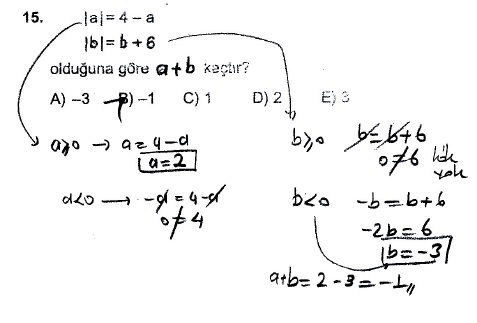 15. |a| = 4 – a
|b| = b + 6
olduğuna göre a+b kaçtır?
A) –3 B) –1 C) 1 D) 2 E) 3
a⩾0 → a = 4-a
a = 2
a<0 → -a = 4-a
0 ≠ 4
b⩾0 b = b+6
0 ≠ 6 kök yok
b<0 -b = b+6
-2b = 6
b = -3
a+b = 2 - 3 = -1,,